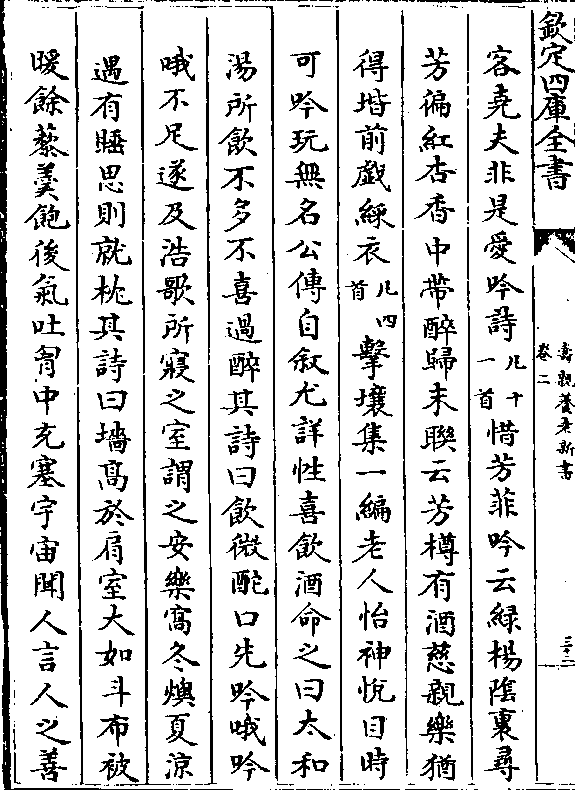 欽定四庫全書
壽親養老新書
卷二
三十二
客堯夫非是愛吟詩凡十一首惜芳菲吟云緑楊隂裏尋
芳徧紅杏香中帶醉歸末聯云芳樽有酒慈親樂猶
得堦前戯綵衣凡四首擊壤集一編老人怡神悅目時
可吟玩無名公傳自叙尤詳性喜飲酒命之曰太和
湯所飲不多不喜過醉其詩曰飲微酡口先吟哦吟
哦不足遂及浩歌所寢之室謂之安樂窩冬燠夏涼
遇有睡思則就枕其詩曰墻髙於肩室大如斗布被
暖餘藜羮飽後氣吐胷中充塞宇宙聞人言人之善